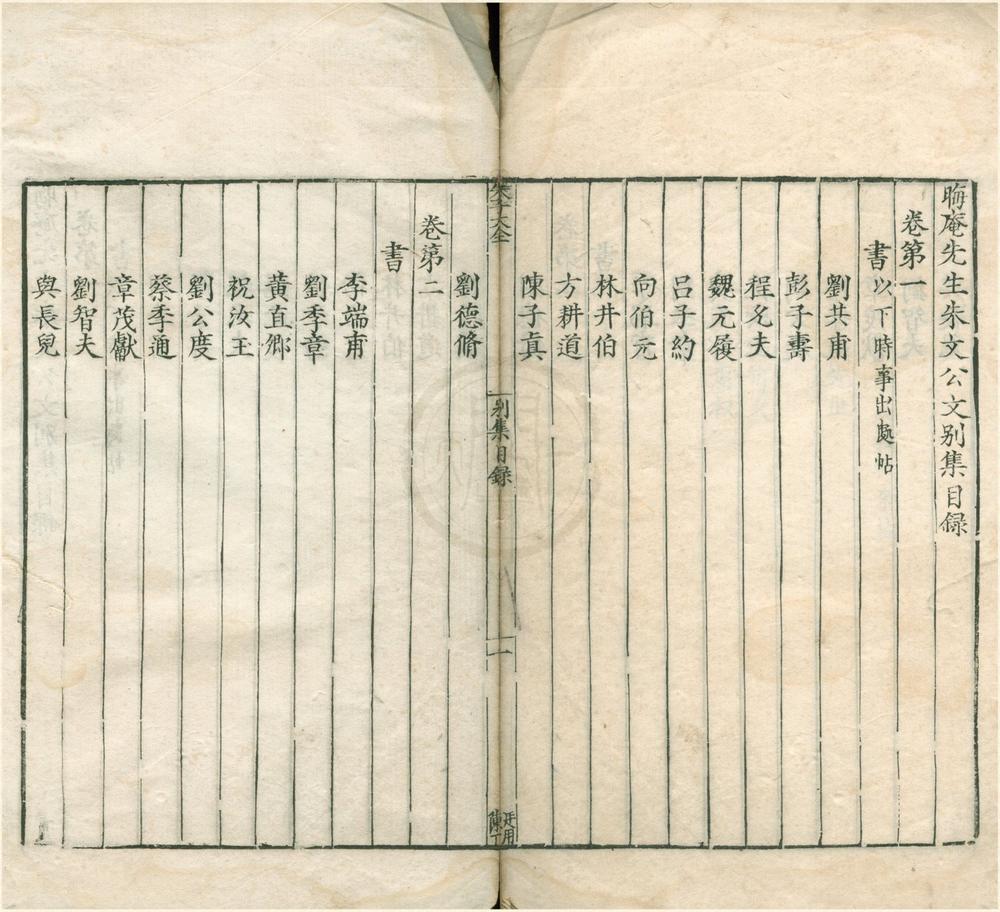 晦庵先生朱文公文别集目録
卷第一
書以下時事出處帖
劉共甫
彭子壽
程允夫
魏元履
吕子約
向伯元
林井伯
方耕道
陳子真
朱子大全
别集目録
一
劉德脩
卷第二
書
李端甫
劉季章
黄直卿
祝汝玉
劉公度
蔡季通
章茂獻
劉智夫
與長兒